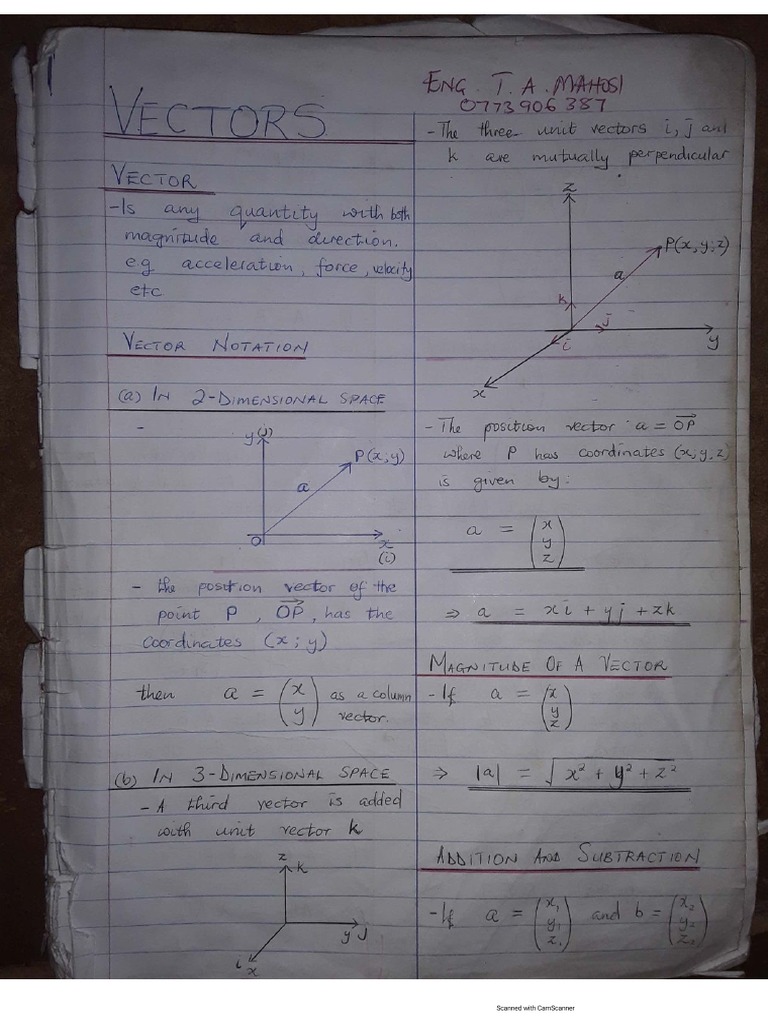 VECTORS
VECTOR
-Is any quantity with both
magnitude and direction.
e.g acceleration, force, velocity
etc
VECTOR NOTATION
(a) IN 2-DIMENSIONAL SPACE
-
y(j)
P(x;y)
a
O
x
(i)
- the position vector of the
point P, \overrightarrow{OP}, has the
coordinates (x;y)
then a = \begin{pmatrix} x \\ y \end{pmatrix} as a column
vector.
(b) IN 3-DIMENSIONAL SPACE
- A third vector is added
with unit vector k
z
k
y j
i
x
ENG. T. A. MAHOSI
0773906387
- The three unit vectors i, j and
k are mutually perpendicular
z
P(x,y;z)
a
k
j
i
y
x
- The position vector a = \overrightarrow{OP}
where P has coordinates (x;y;z)
is given by:
a = \begin{pmatrix} x \\ y \\ z \end{pmatrix}
⇒ a = xi + yj + zk
MAGNITUDE OF A VECTOR
-If a = \begin{pmatrix} x \\ y \\ z \end{pmatrix}
⇒ |a| = \sqrt{x² + y² + z²}
ADDITION AND SUBTRACTION
-If a = \begin{pmatrix} x₁ \\ y₁ \\ z₁ \end{pmatrix} and b = \begin{pmatrix} x₂ \\ y₂ \\ z₂ \end{pmatrix}
Scanned with CamScanner